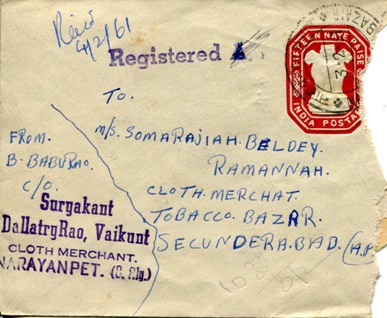 Recd
4/2/61
Registered A.
FIFTEEN NAYE PAISE
INDIA POSTAGE
BAZAR
To.
M/S. SOMARAJIAH. BELDEY.
RAMANNAH.
CLOTH. MERCHAT.
TOBACCO. BAZAR.
SECUNDERA.BAD. (A.P
FROM.
B. BABURAO.
C/O.
Suryakant
DattatryRao, Vaikunt
CLOTH MERCHANT.
NARAYANPET. (C. Rly.)